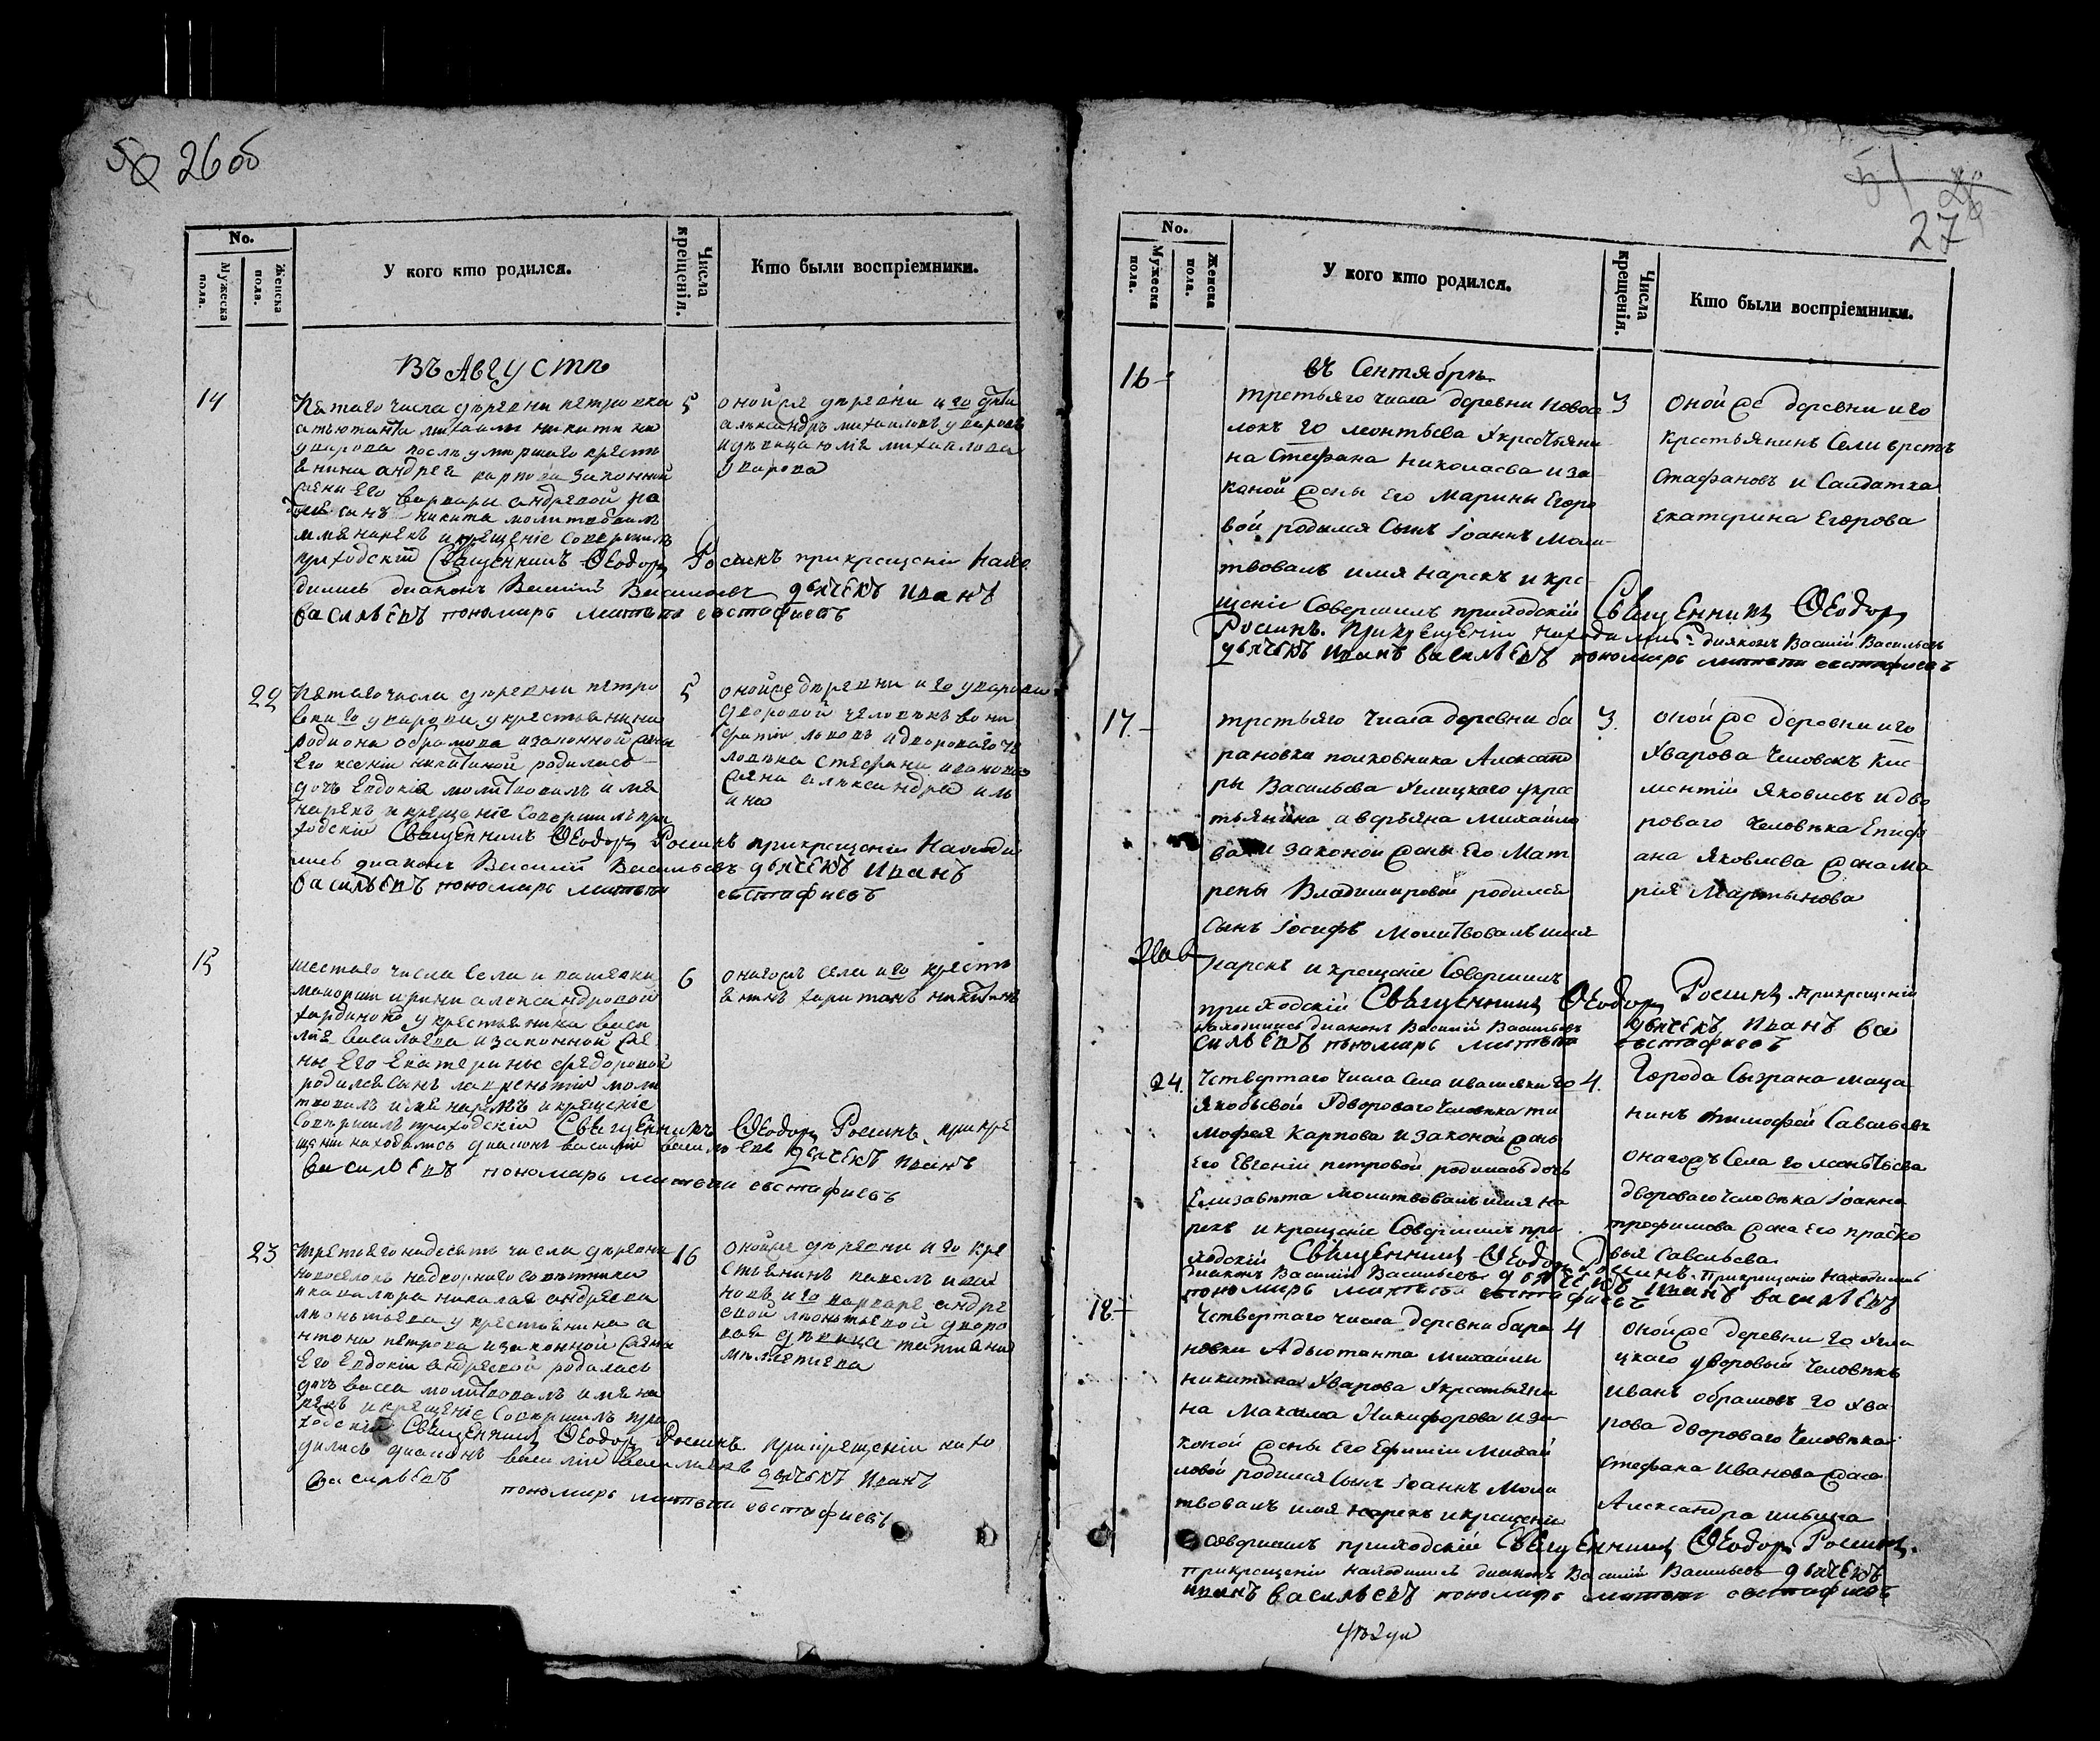 50 26 об
No.
Мужеска пола.
Женска пола.
У кого кто родился.
Числа крещенія.
Кто были воспріемники.
Въ Августѣ
14
Пятаго числа деревни петровки
адъютанта михаилы никитина
уварова послѣ умершаго крестъ
янина андрея карпова законной
жены Его варвары андревой
сынъ никита молитвовалъ
имя нарекъ и крещеніе совершилъ
приходскій Священникъ Ѳеодоръ Росинъ при крещеніи нахо
дились диаконъ Василий Васильевъ дьячекъ иванъ
васильевъ пономарь матвей евстафиевъ
5
оной же деревни и го
александръ михаиловъ уваровъ
и девица юлия михаилова
уварова
22
Пятаго числа деревни петро
вки го уварова у крестьянина
родиона абрамова и законной жены
Его ксении никитиной родилась
дочь Евдокия молитвовалъ имя
нарекъ и крещеніе совершилъ при
ходскій Священникъ Ѳеодоръ Росинъ при крещеніи находи
лись диаконъ Василий Васильевъ дьячекъ Иванъ
васильевъ пономарь матвей евстафиевъ
5
оной же деревни и го уварова
дворовой человекъ вони
фатій львовъ и двороваго че
ловека стефана иванова
жена александра иль
ина
15
шестаго числа села ивашевки
маиорши ирини александровой
у крестьянина васи
лия василева и законной же
ны Его Екатерины федоровой
родился сынъ лаврентий моли
твовалъ имя нарекъ и крещеніе
Совершилъ приходскій Священникъ Ѳеодоръ Росинъ при кре
щении находились диаконъ василий васильевъ дьячекъ иванъ
васильевъ пономарь матвей евстафиевъ
6
онагожъ села и го кресть
янинъ харитонъ никитинъ
23
Третьегонадесять числа деревни
новоселокъ надворнаго советника
и кавалера николая андреева
леонтьева у крестьянина а
нтона петрова и законной жены
Его Евдокии андреевой родилась
дочь васса молитвовалъ имя на
рекъ и крещеніе Совершилъ при
ходскій Священникъ Ѳеодоръ Росинъ при крещении нахо
дились диаконъ василий васильевъ дьячекъ иванъ
васильевъ пономарь матвей евстафиевъ
16
оной же деревни и го кре
стьянинъ павелъ ива
новъ и го варвары андре
евой леонтьевой дворо
вая девица татияна
мелетиева
51 26
27
No.
Мужеска пола.
Женска пола.
У кого кто родился.
Числа крещенія.
Кто были воспріемники.
въ Сентябрѣ
16
третьяго числа деревни новосе
локъ го леонтьева у крестьяни
на Стефана Николаева и за
коной жены Его Марины Егоро
вой родился Сынъ Іоаннъ моли
твовалъ имя нарекъ и кре
щеніе Совершилъ приходскій Священникъ Ѳеодоръ
Росинъ. При крещеніи находились диаконъ Василій Васильевъ
дьячекъ иванъ васильевъ пономарь матвей евстафиевъ
3
оной же деревни и го
крестьянинъ Селиверстъ
Стафановъ и Салдатка
екатерина Егорова
17
третьяго числа деревни ба
рановки полковника Александ
ры Васильева Углицкаго у крес
тьянина аверьяна Михайло
ва и законой жены Его Мат
рены Владимировой родился
сынъ Іосифъ молитвовалъ имя
нарекъ и крещеніе Совершилъ
приходскій Священникъ Ѳеодоръ Росинъ при крещеніи
находились диаконъ Василій Васильевъ дьячекъ иванъ ва
сильевъ пономарь матвей евстафиевъ
3.
оной же деревни и го
Уварова человекъ Кле
ментій Яковлевъ и дво
роваго человѣка Епиф
ана Яковлева жена Ма
рия Мартынова
24.
Четвертаго числа Села ивашевки го
Якобьевой у двороваго человѣка ти
мофея Карпова и законой жены
Его Евгеніи петровой родилась дочь
Елизавѣта молитвовалъ имя на
рекъ и крещеніе Совершилъ при
ходскій Священникъ Ѳеодоръ Росинъ. При крещеніи находились
диаконъ Василій Васильевъ дьячекъ иванъ васильевъ
пономарь матвей евстафиевъ
4.
Города Сызрана меща
нинъ тимофей Савельевъ
онагожъ Села го леонтьева
двороваго человѣка Іоанна
трофимова жена Его праско
вья Савельева
18
Четвертаго числа деревни бара
новки Адъютанта михайлы
никитина Уварова у крестьяни
на Максима Никифорова и за
коной жены Его Ефимии Михай
ловой родился Сынъ Іоаннъ моли
твовалъ имя нарекъ и крещеніе
совершилъ приходскій Священникъ Ѳеодоръ Росинъ.
При крещеніи находились диаконъ Василій Васильевъ дьячекъ
иванъ васильевъ пономарь матвей евстафиевъ
4
оной же деревни го Угли
цкаго дворовый человѣкъ
Иванъ обрамовъ го Ува
рова двороваго человѣка
Стефана Иванова жена
Александра ильина